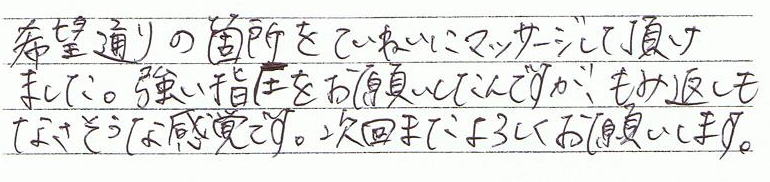 希望通りの箇所をていねいにマッサージして頂け
ました。強い指圧をお願いしたんですが、もみ返しも
なさそうな感覚です。次回またよろしくお願いします。